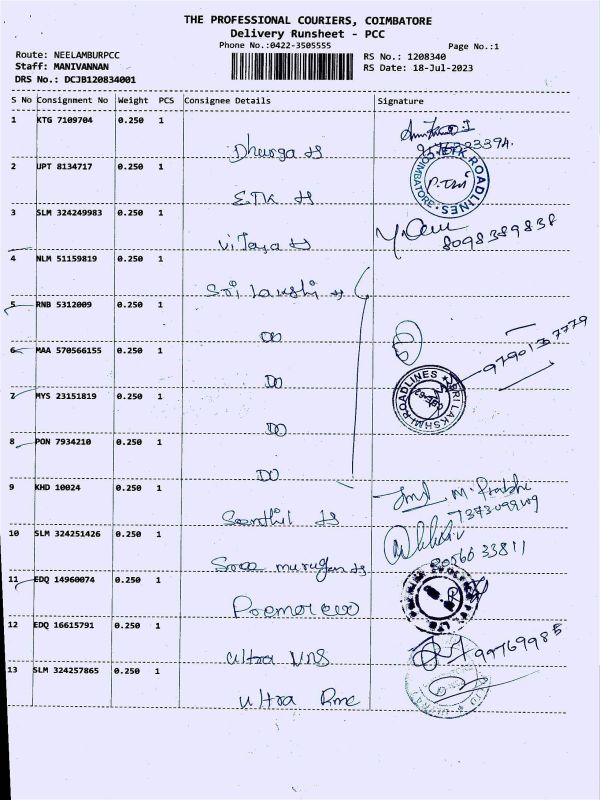 THE PROFESSIONAL COURIERS, COIMBATORE
Delivery Runsheet - PCC
Phone No.:0422-3505555
Page No.:1
Route: NEELAMBURPCC
Staff: MANIVANNAN
DRS No.: DCJB120834001
RS No.: 1208340
RS Date: 18-Jul-2023
S No Consignment No Weight PCS Consignee Details Signature
1 KTG 7109704 0.250 1
Dhurga ts
2 UPT 8134717 0.250 1
ETK ts
ETK ROADLINES COIMBATORE
3 SLM 324249983 0.250 1
Vijaya ts
8098389838
4 NLM 51159819 0.250 1
Sri Lakshi ts
5 RNB 5312009 0.250 1
DO
6 MAA 570566155 0.250 1
DO
9790137779
SRI LAKSHMI ROADLINES
7 MYS 23151819 0.250 1
DO
8 PON 7934210 0.250 1
DO
9 KHD 10024 0.250 1
Senthil ts
M. Prabhu
10 SLM 324251426 0.250 1
Sree murugan ts
11 EDQ 14960074 0.250 1
12 EDQ 16615791 0.250 1
ultra VRS
99769985
13 SLM 324257865 0.250 1
ultra Rmc